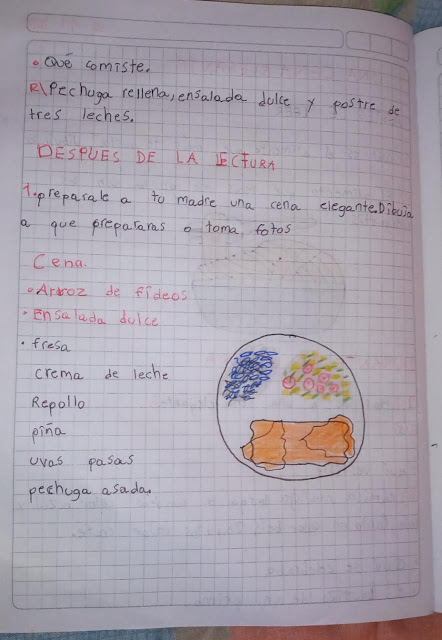 • Qué comiste.
R\ Pechuga rellena, ensalada dulce y postre de
tres leches.
DESPUES DE LA LECTURA
1. preparale a tu madre una cena elegante. Dibuja
a que prepararas o toma fotos
Cena.
• Arroz de fideos
• Ensalada dulce
• fresa
crema de leche
Repollo
piña
uvas pasas
pechuga asada.